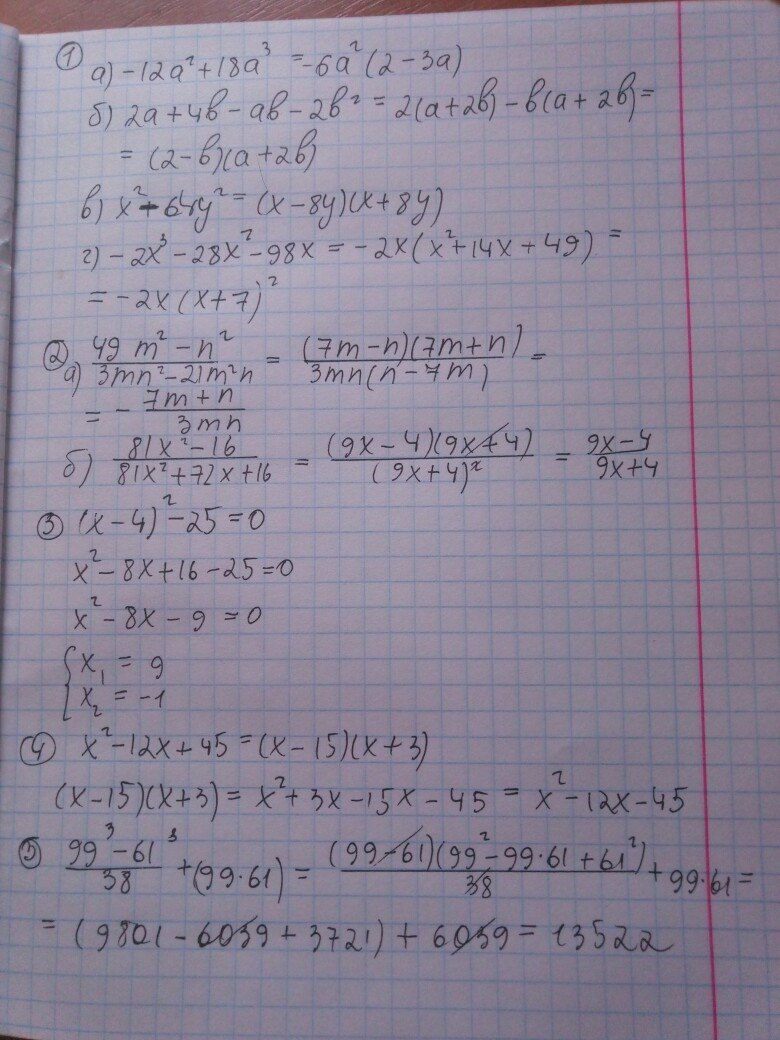 ① а) -12a² + 18a³ = -6a²(2 - 3a)
б) 2a + 4b - ab - 2b² = 2(a + 2b) - b(a + 2b) =
= (2 - b)(a + 2b)
в) x² - 64y² = (x - 8y)(x + 8y)
г) -2x³ - 28x² - 98x = -2x(x² + 14x + 49) =
= -2x(x + 7)²
② а) (49m² - n²)/(3mn² - 21m²n) = ((7m - n)(7m + n))/(3mn(n - 7m)) =
= - (7m + n)/(3mn)
б) (81x² - 16)/(81x² + 72x + 16) = ((9x - 4)(9x + 4))/((9x + 4)²) = (9x - 4)/(9x + 4)
③ (x - 4)² - 25 = 0
x² - 8x + 16 - 25 = 0
x² - 8x - 9 = 0
x₁ = 9
x₂ = -1
④ x² - 12x + 45 = (x - 15)(x + 3)
(x - 15)(x + 3) = x² + 3x - 15x - 45 = x² - 12x - 45
⑤ (99³ - 61³)/38 + (99·61) = ((99 - 61)(99² - 99·61 + 61²))/38 + 99·61 =
= (9801 - 6039 + 3721) + 6039 = 13522